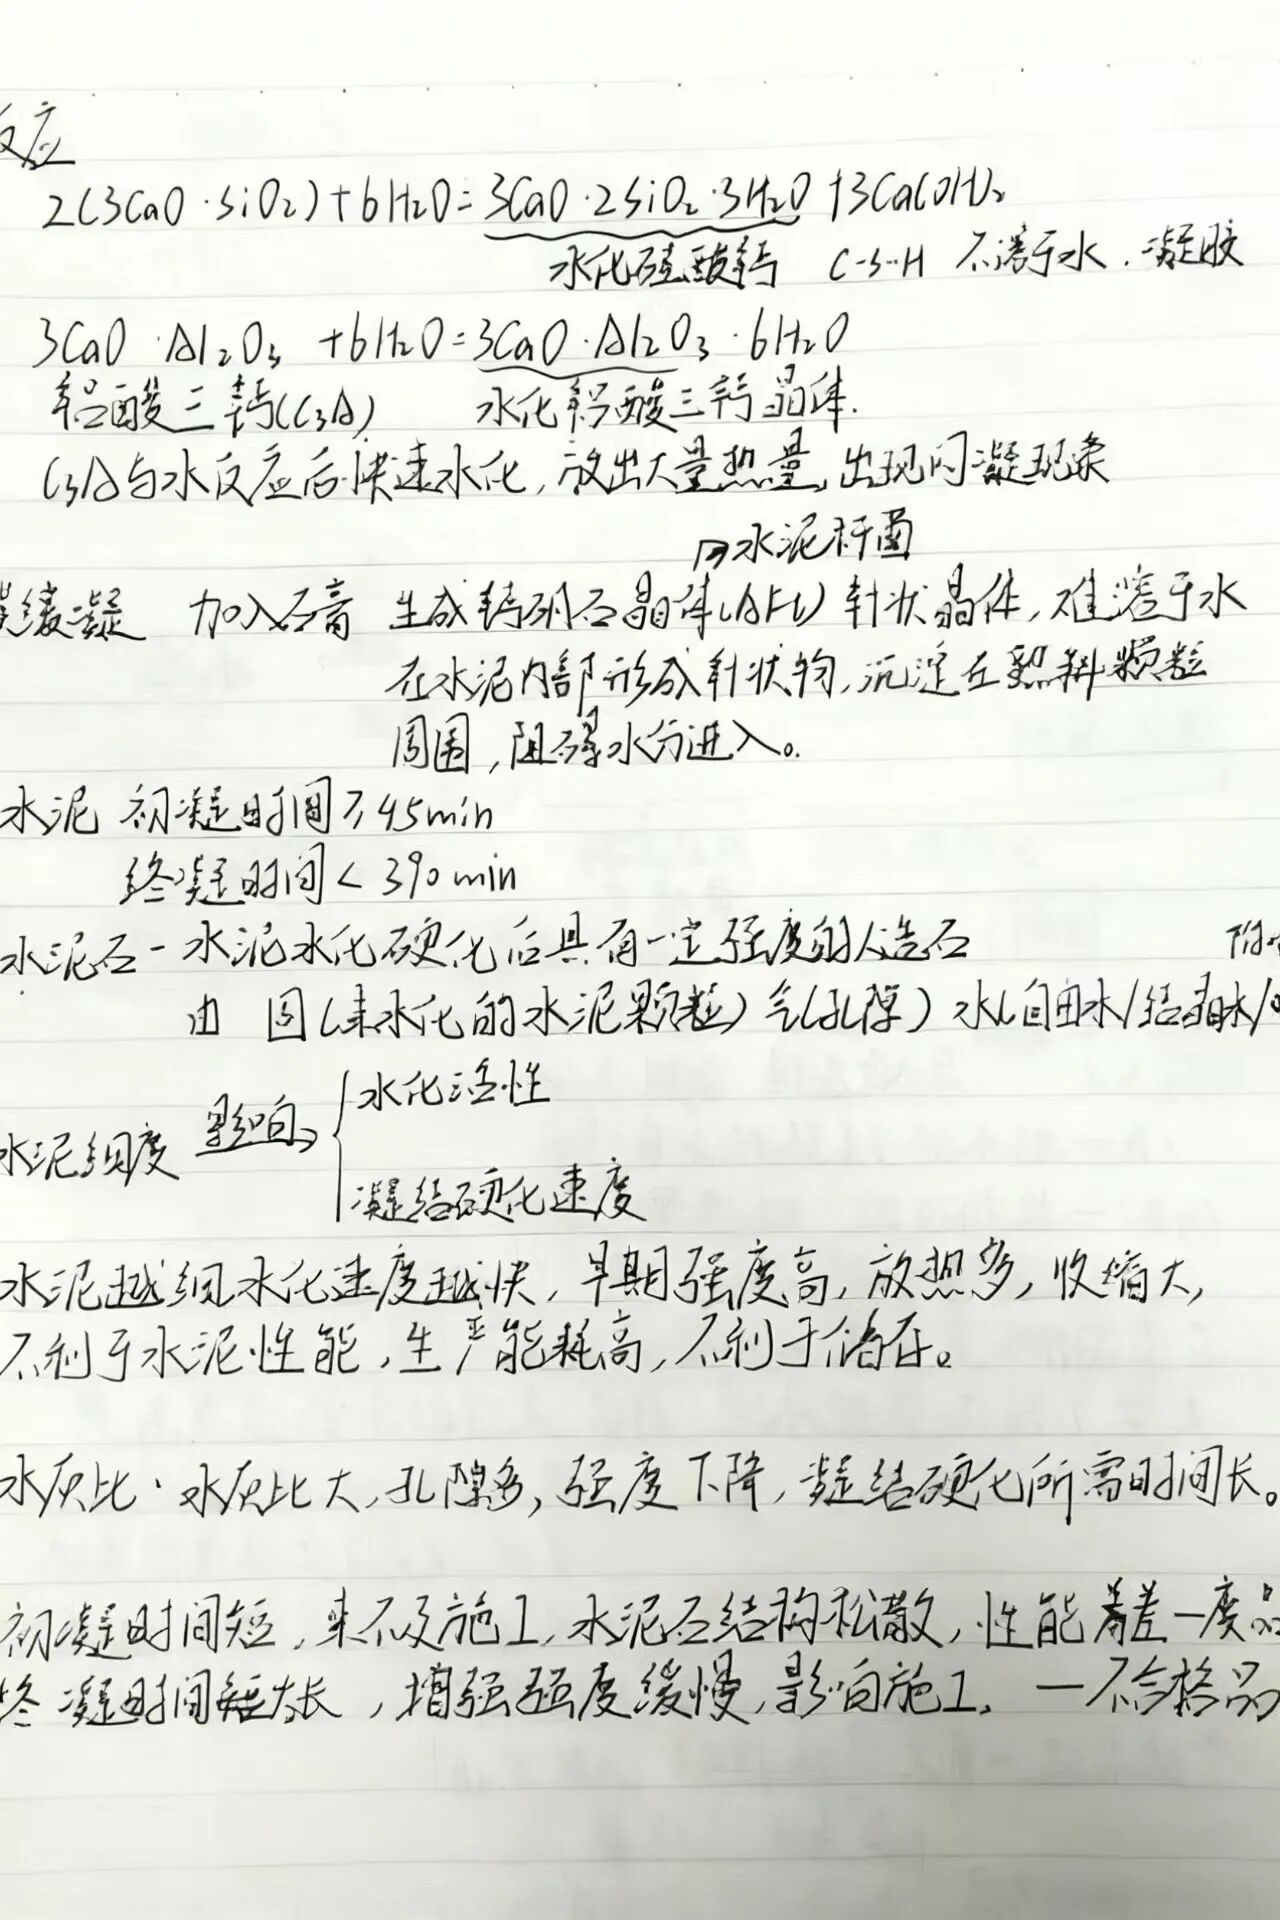 反应
2(3CaO·SiO₂)+6H₂O=3CaO·2SiO₂·3H₂O+3Ca(OH)₂
水化硅酸钙 C-S-H 不溶于水.凝胶
3CaO·Al₂O₃ +6H₂O=3CaO·Al₂O₃·6H₂O
铝酸三钙(C₃A) 水化铝酸三钙晶体.
C₃A与水反应后快速水化,放出大量热量,出现闪凝现象
水泥杆菌
缓凝 加入石膏 生成钙矾石晶体(AFt) 针状晶体,难溶于水
在水泥内部形成针状物,沉淀在熟料颗粒
周围,阻碍水分进入。
水泥 初凝时间≥45min
终凝时间<390min
水泥石-水泥水化硬化后具有一定强度的人造石 附
由 固(未水化的水泥颗粒)气(孔隙)水(自由水/结晶水/
水泥细度 影响→ 水化活性
凝结硬化速度
水泥越细水化速度越快,早期强度高,放热多,收缩大,
不利于水泥性能,生产能耗高,不利于储存。
水灰比·水灰比大,孔隙多,强度下降,凝结硬化所需时间长。
初凝时间短,来不及施工,水泥石结构松散,性能差—废品
终凝时间太长,增强强度缓慢,影响施工.—不合格品